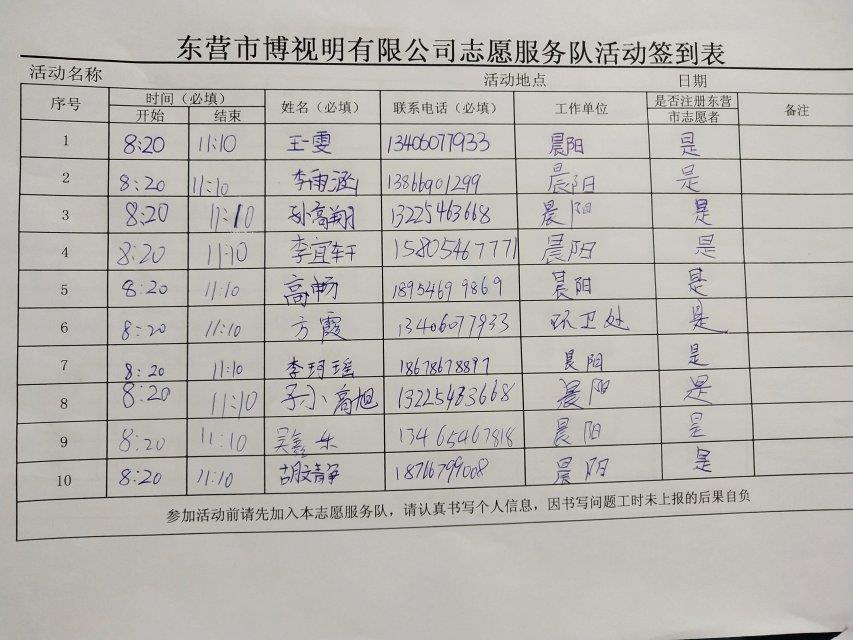 东营市博视明有限公司志愿服务队活动签到表
活动名称 活动地点 日期
序号 时间（必填） 姓名（必填） 联系电话（必填） 工作单位 是否注册东营市志愿者 备注
开始 结束
1 8:20 11:10 王一雯 13406077933 晨阳 是
2 8:20 11:10 李雨涵 13866901299 晨阳 是
3 8:20 11:10 孙高翔 13225463668 晨阳 是
4 8:20 11:10 李宜轩 15805467771 晨阳 是
5 8:20 11:10 高畅 18954699869 晨阳 是
6 8:20 11:10 方霞 13406077933 环卫处 是
7 8:20 11:10 李玥瑶 18678678897 晨阳 是
8 8:20 11:10 孙高旭 13225463668 晨阳 是
9 8:20 11:10 吴鑫乐 13465467818 晨阳 是
10 8:20 11:10 胡文静 18716799008 晨阳 是
参加活动前请先加入本志愿服务队，请认真书写个人信息，因书写问题工时未上报的后果自负